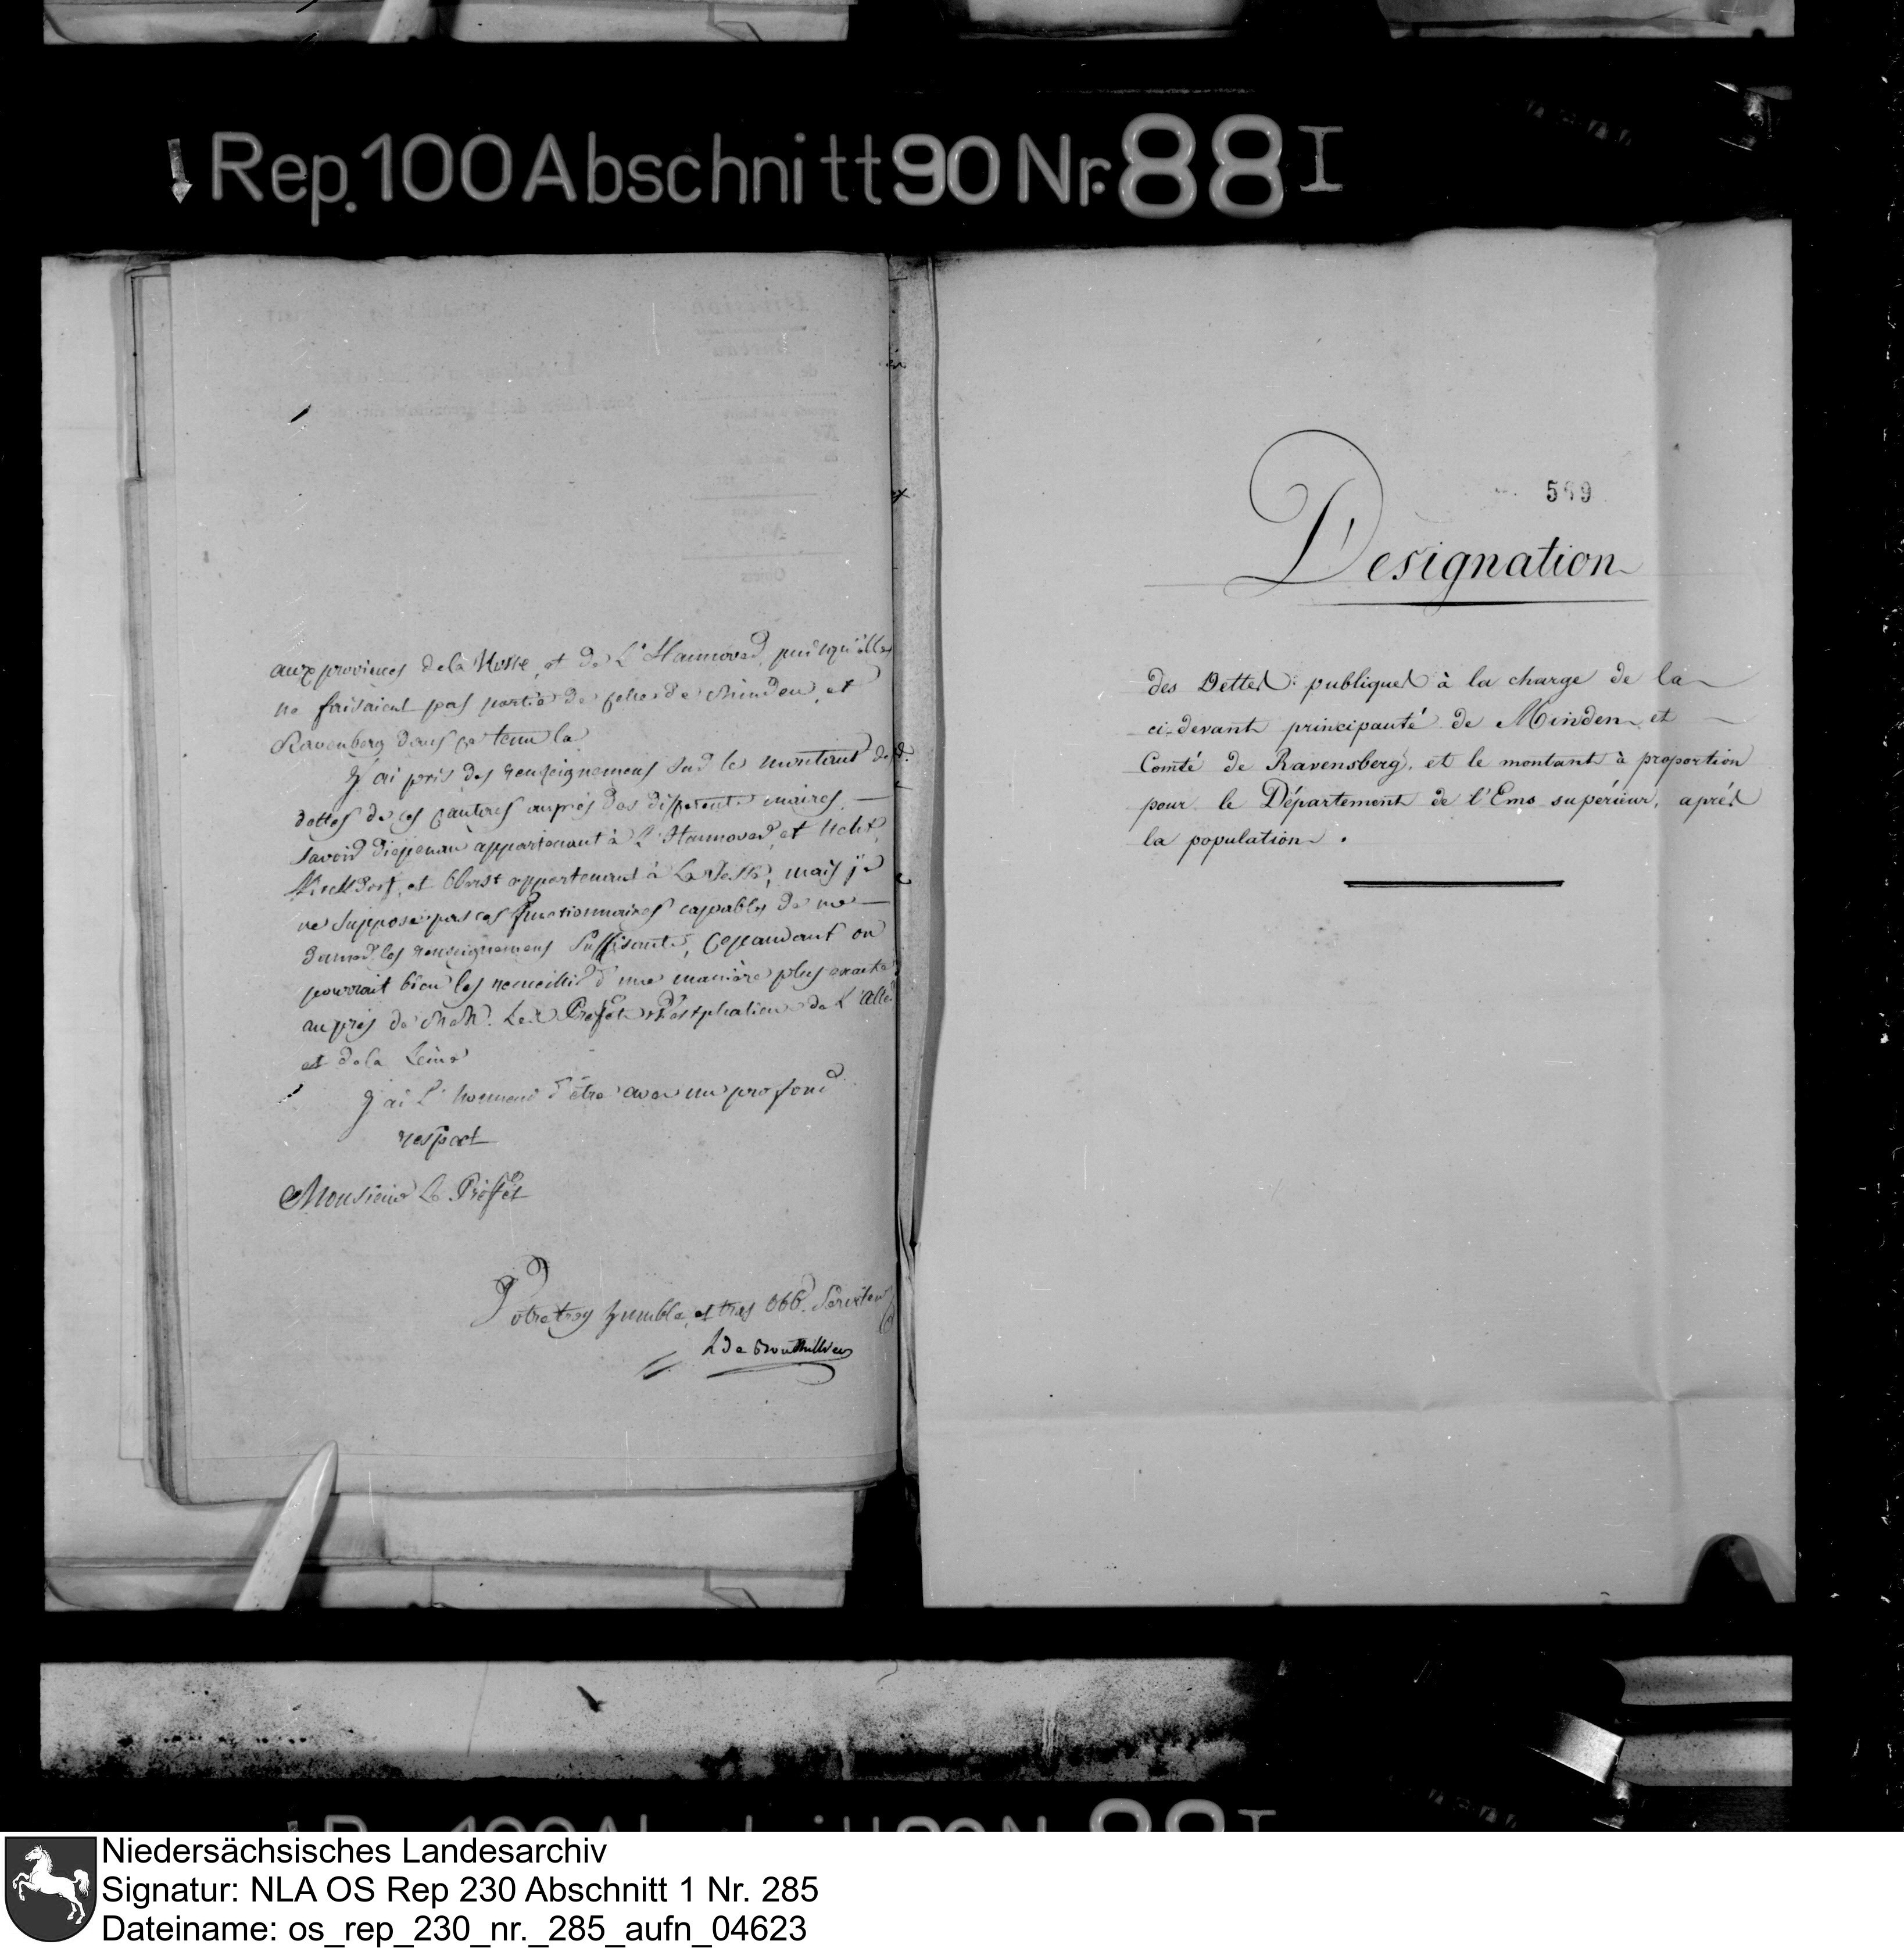 Rep. 100 Abschnitt 90 Nr. 88 I
aux provinces de la Hesse, et de L'Hannover, puisqu'elles
ne faisaient pas partie de celles de Minden, et
Ravenberg dans ce tems la
J'ai pris des renseignemens sur le montant des
dettes de ces cantons auprès des différents maires,
savoir Diepenau appartenant à L'Hannover, et Ucht,
et appartenant à La Hesse; mais je
ne suppose pas ces fonctionnaires capables de me
donner les renseignemens suffisants, Cependant on
pourrait bien les recueillir d'une manière plus exacte
auprès de MM. Les Préfets Westphaliens de L'Aller
et de la Leine
J'ai l'honneur d'être avec un profond
respect
Monsieur Le Préfet
Votre tres humble, et tres obb. Serviteur
569
Designation
des Dettes publiques à la charge de la
ci-devant principauté de Minden et
Comté de Ravensberg, et le montant à proportion
pour le Département de l'Ems supérieur, après
la population.
Niedersächsisches Landesarchiv
Signatur: NLA OS Rep 230 Abschnitt 1 Nr. 285
Dateiname: os_rep_230_nr._285_aufn_04623